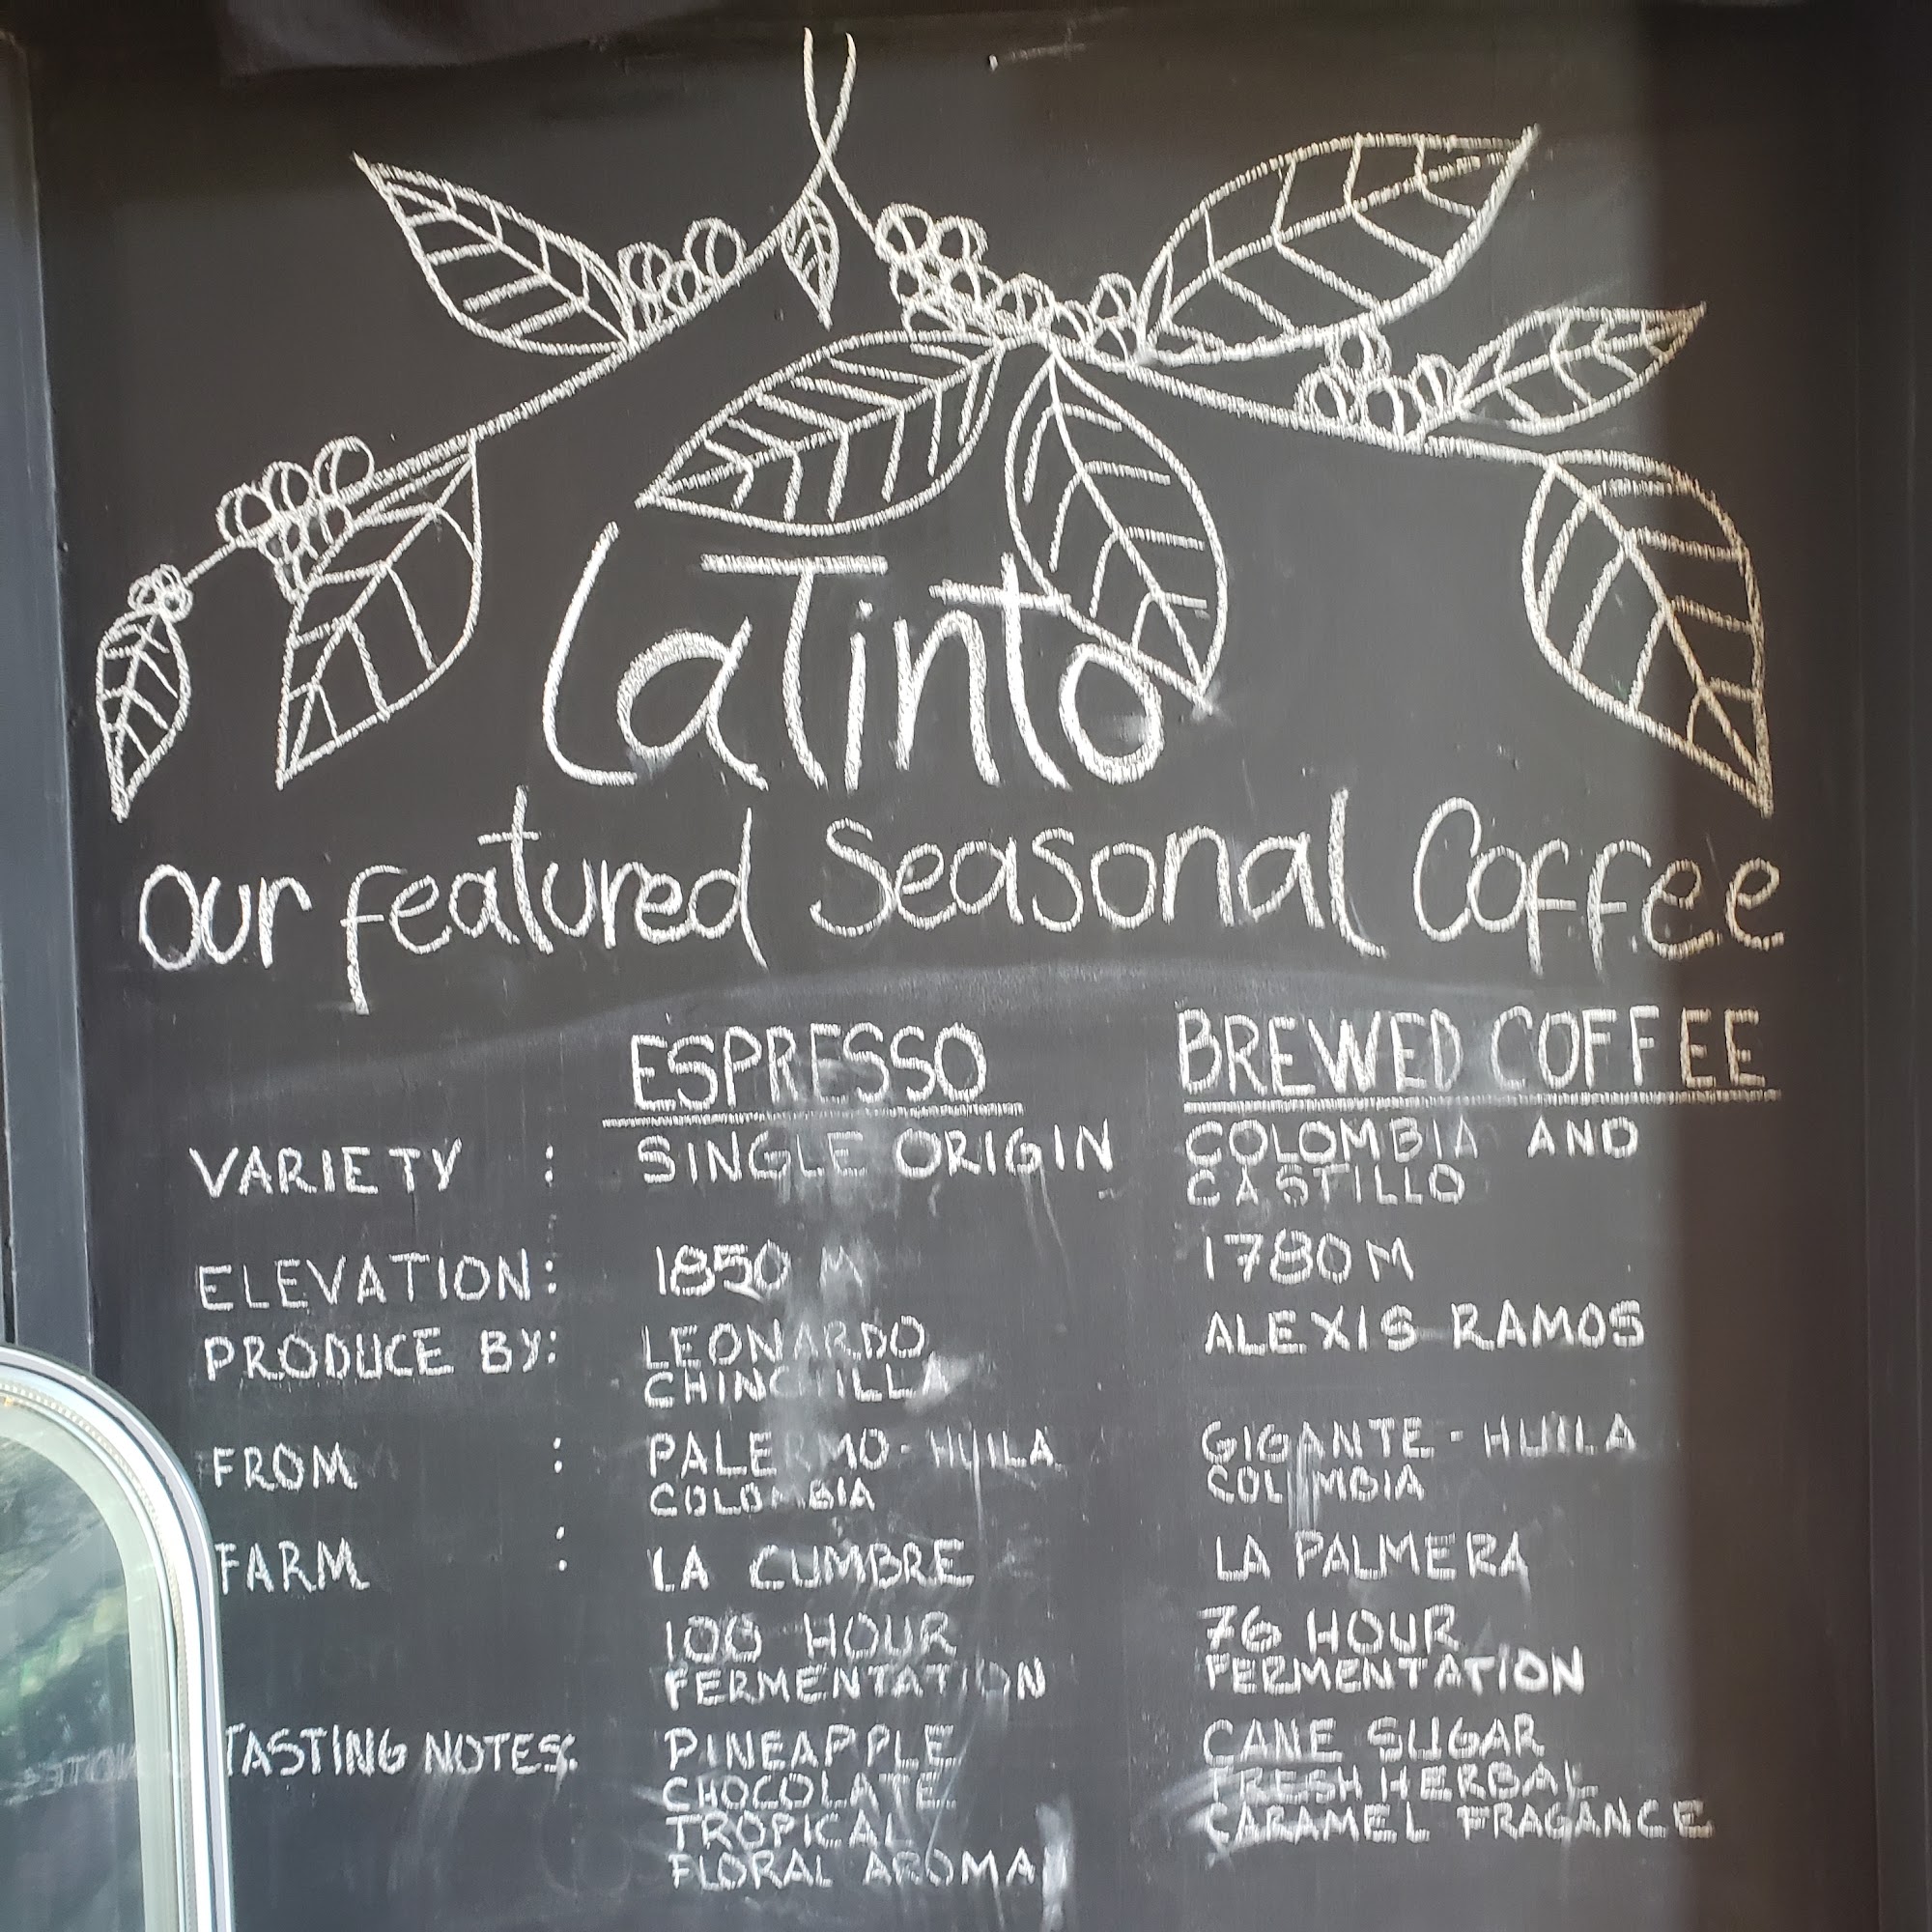 LaTinto
Our featured Seasonal Coffee
ESPRESSO BREWED COFFEE
VARIETY : SINGLE ORIGIN COLOMBIA AND
CASTILLO
ELEVATION: 1850 M 1780 M
PRODUCE BY: LEONARDO ALEXIS RAMOS
CHINCHILLA
FROM : PALERMO - HUILA GIGANTE - HUILA
COLOMBIA COLOMBIA
FARM : LA CUMBRE LA PALMERA
100 HOUR 76 HOUR
FERMENTATION FERMENTATION
TASTING NOTES: PINEAPPLE CANE SUGAR
CHOCOLATE FRESH HERBAL
TROPICAL CARAMEL FRAGANCE
FLORAL AROMA